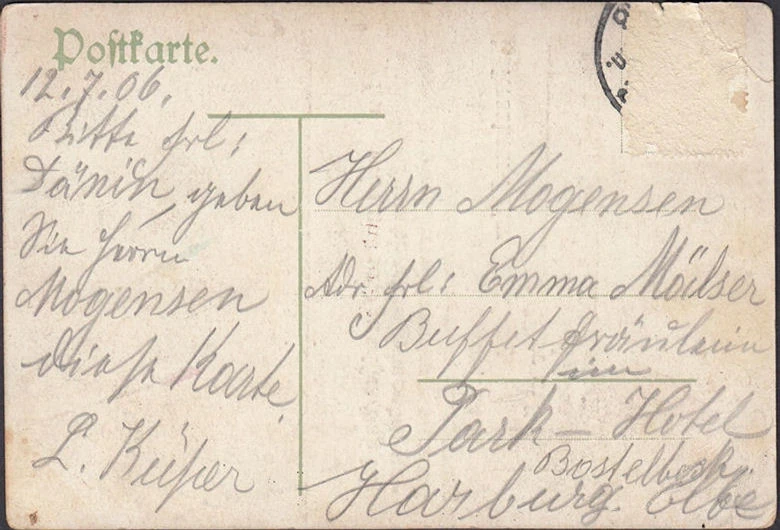 Postkarte.
12.7.06.
Bitte Frl:
Dänin, geben
Sie Herrn
Mogensen
diese Karte.
L. Küper
Herrn Mogensen
Adr. Frl: Emma
Buffet Fräulein
im
Park-Hotel
Bostelbeck.
Harburg. Elbe